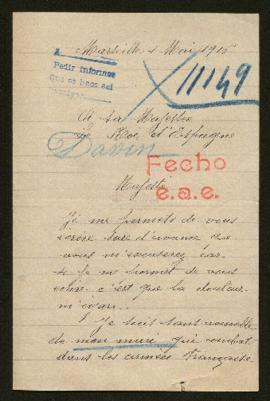 Marseille 1 Mai 1915
A
Pedir informes
que se hace así
11149
A sa Majestée
Le Roi d'Espagne
Davin
Fecho
e.a.e.
Majesté
Je me permets de vous
écrire sure d'avance que
vous m'excuserez car
si je me permet de vous
c'est que la douleur
m'égare.
Je suis sans nouvelle
de mon mari qui combat
dans les armées française